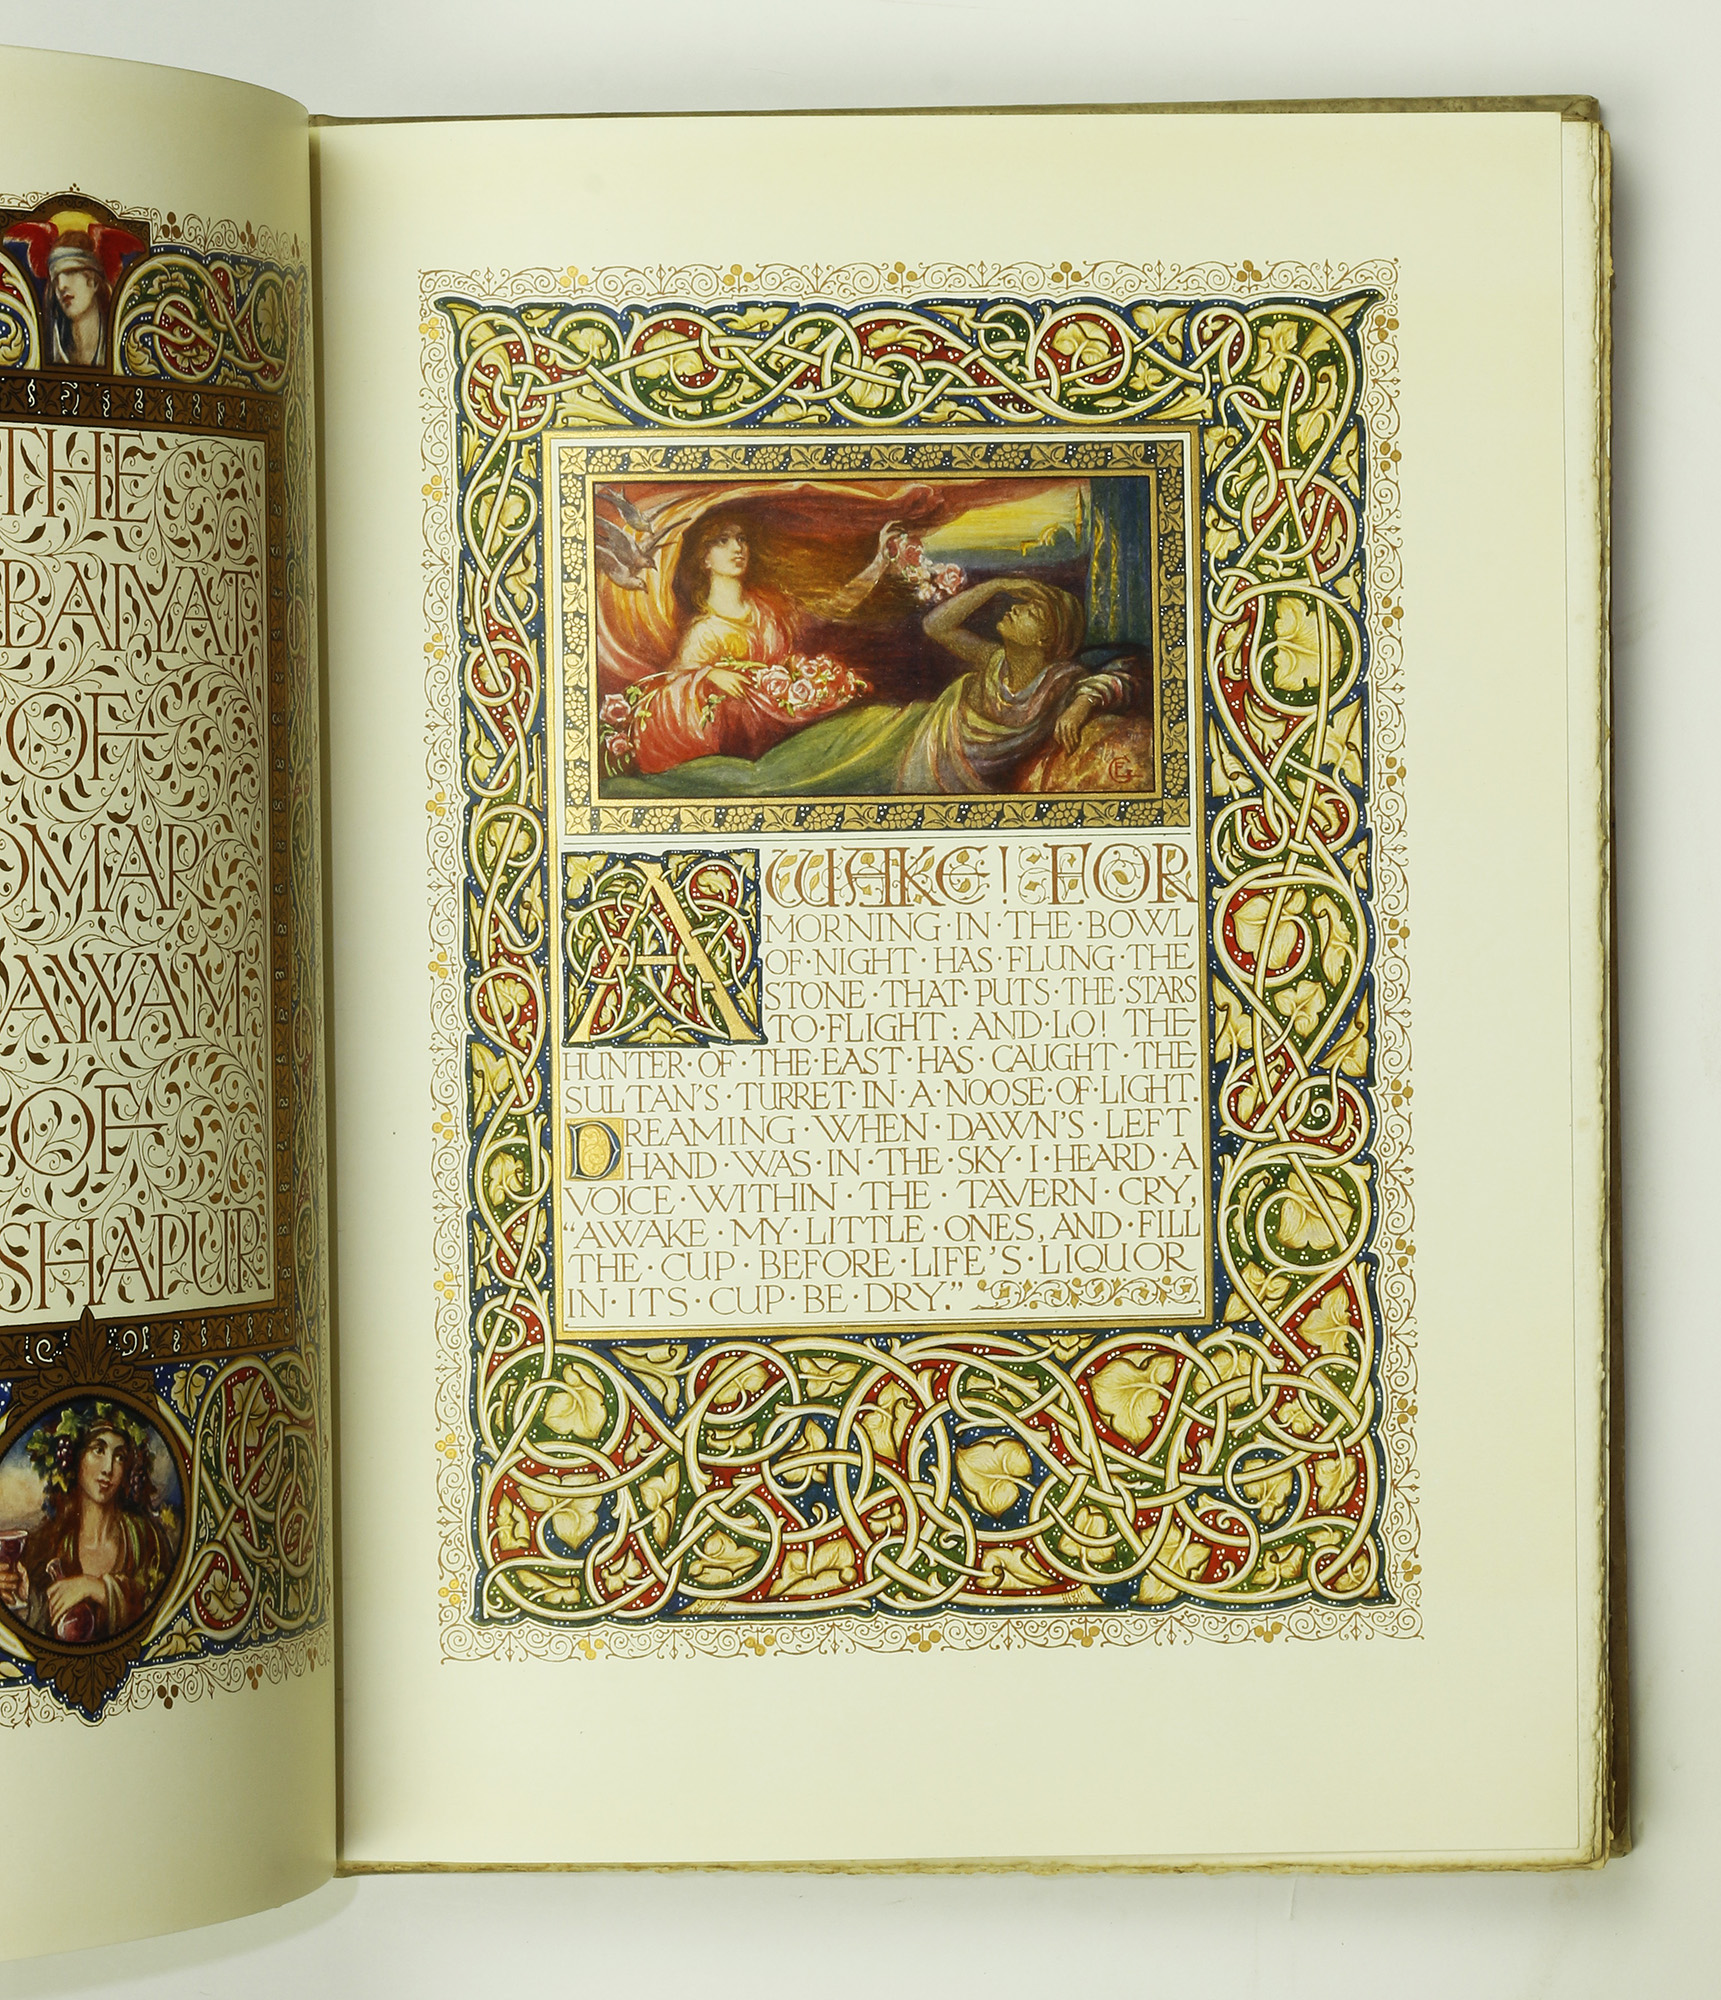 THE
BAIYAT
OF
OMAR
AYYAM
OF
SHAPUR
AWAKE! FOR
MORNING·IN·THE·BOWL
OF·NIGHT·HAS·FLUNG·THE
STONE·THAT·PUTS·THE·STARS
TO·FLIGHT: AND·LO! THE
HUNTER·OF·THE·EAST·HAS·CAUGHT·THE
SULTAN'S·TURRET·IN·A·NOOSE·OF·LIGHT.
DREAMING·WHEN·DAWN'S·LEFT
HAND·WAS·IN·THE·SKY·I·HEARD·A
VOICE·WITHIN·THE·TAVERN·CRY,
"AWAKE·MY·LITTLE·ONES, AND·FILL
THE·CUP·BEFORE·LIFE'S·LIQUOR
IN·ITS·CUP·BE·DRY."